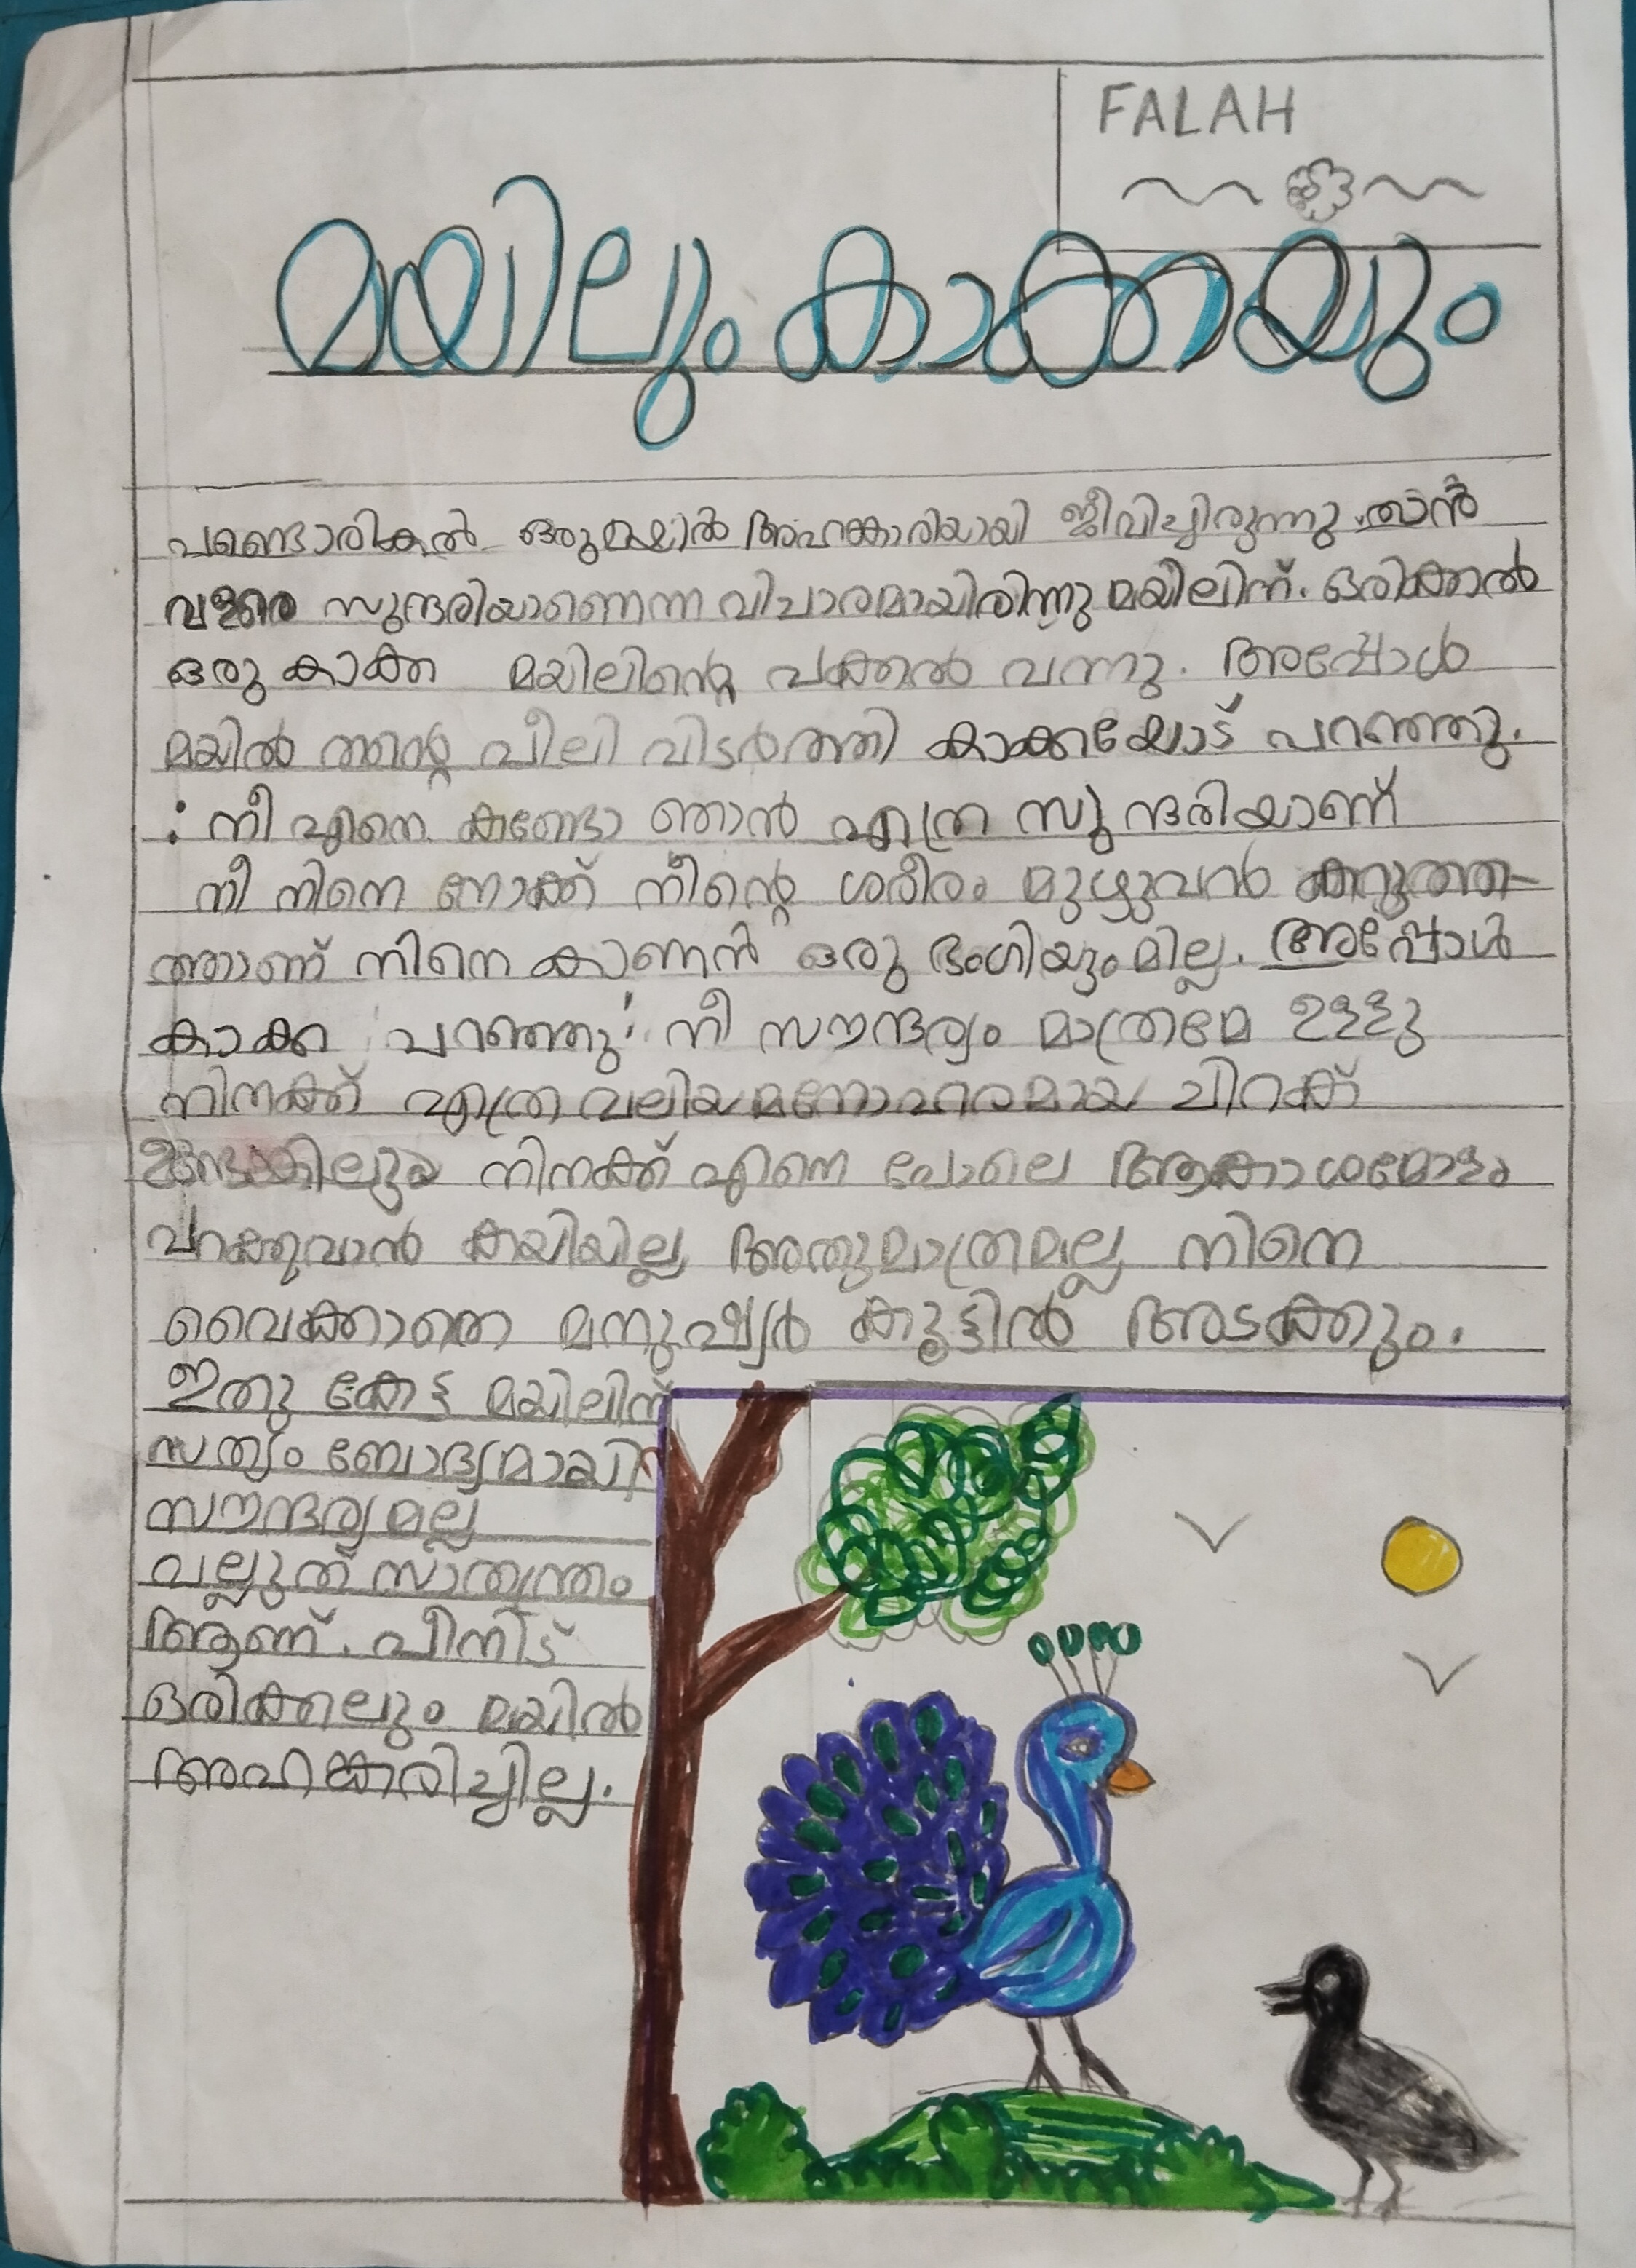 FALAH
മയിലും കാക്കയും
പണ്ടൊരിക്കൽ ഒരു മയിൽ അഹങ്കാരിയായി ജീവിച്ചിരുന്നു. താൻ
വളരെ സുന്ദരിയാണെന്ന വിചാരമായിരിന്നു മയിലിന്. ഒരിക്കൽ
ഒരു കാക്ക മയിലിന്റെ പക്കൽ വന്നു. അപ്പോൾ
മയിൽ തന്റെ പീലി വിടർത്തി കാക്കയോട് പറഞ്ഞു.
: നീ എന്നെ കണ്ടോ ഞാൻ എത്ര സുന്ദരിയാണ്
നീ നിനെ നോക്ക് നിന്റെ ശരീരം മുഴുവൻ കറുത്ത-
ത്താണ് നിനെ കാണൻ ഒരു ഭംഗിയുംമില്ല. അപ്പോൾ
കാക്ക പറഞ്ഞു! നീ സൗന്ദര്യം മാത്രമേ ഉള്ളു
നിനക്ക് എത്ര വലിയ മനോഹരമായ ചിറക്
ഉണ്ടെങ്കിലും നിനക്ക് എനെ പോലെ ആകാശമോളം
പറക്കുവാൻ കയിയില്ല അതുമാത്രമല്ല നിനെ
വൈക്കാതെ മനുഷ്യർ കൂട്ടിൽ അടക്കും.
ഇതു കേട്ട മയിലിന്
സത്യം ബോദ്യമായി
സൗന്ദര്യമല്ല
വല്ലുത് സ്വാത്യന്ത്രം
ആണ്. പീനിട്
ഒരിക്കലും മയിൽ
അഹങ്കരിച്ചില്ല.